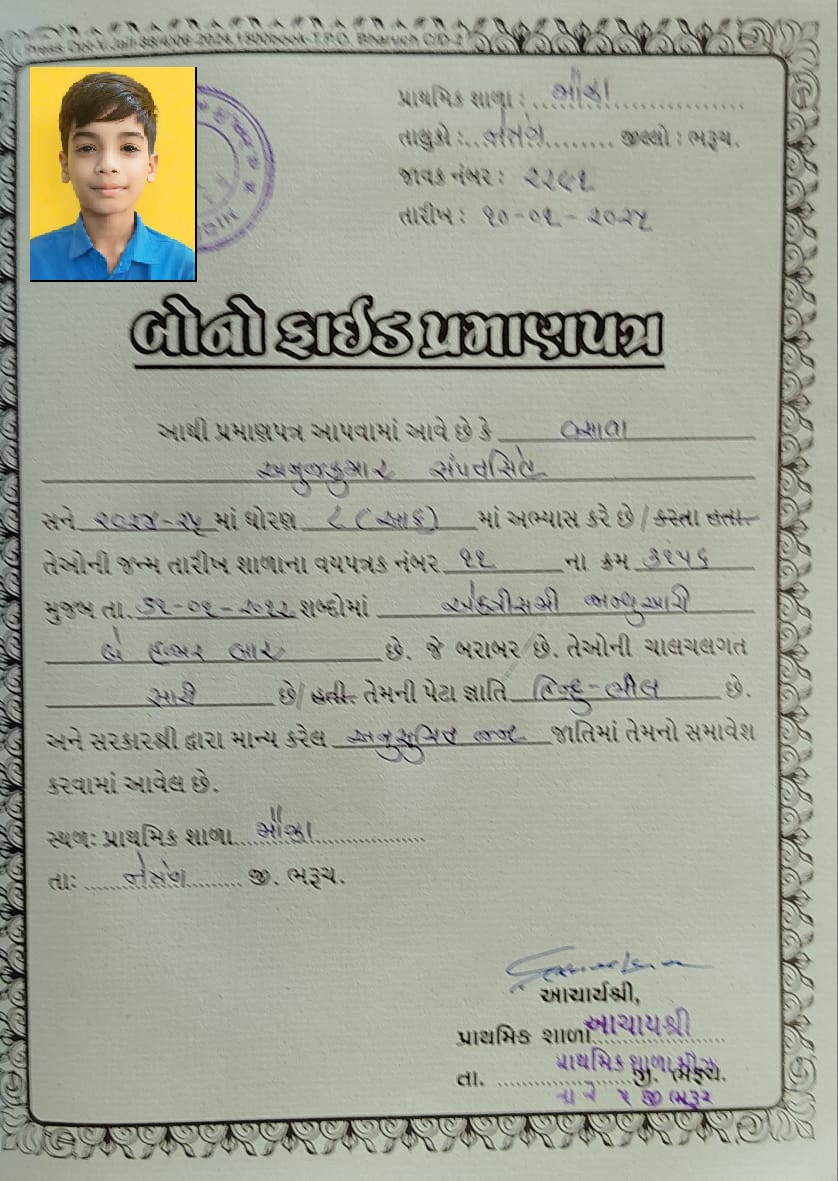 Press Dol-V.Jali-884/06-2024,1800book-T.P.O. Bharuch C/D-2
પ્રાથમિક શાળા : મૌઝા
તાલુકો : નેત્રંગ જીલ્લો : ભરૂચ.
જાવક નંબર : ૨૨૯૧
તારીખ : ૧૦-૦૧-૨૦૨૫
બોનો ફાઈડ પ્રમાણપત્ર
આથી પ્રમાણપત્ર આપવામાં આવે છે કે વસાવા
અનુજકુમાર સંપતસિંહ
સને ૨૦૨૪-૨૫ માં ધોરણ ૮ (આઠ) માં અભ્યાસ કરે છે / કરતા હતા.
તેઓની જન્મ તારીખ શાળાના વયપત્રક નંબર ૧૧ ના ક્રમ ૩૧૫૬
મુજબ તા. ૩૧-૦૧-૨૦૧૨ શબ્દોમાં એકત્રીસમી જાન્યુઆરી
બે હજાર બાર છે. જે બરાબર છે. તેઓની ચાલચલગત
સારી છે/ હતી. તેમની પેટા જ્ઞાતિ હિન્દુ-ભીલ છે.
અને સરકારશ્રી દ્વારા માન્ય કરેલ અનુસુચિત જન જાતિમાં તેમનો સમાવેશ
કરવામાં આવેલ છે.
સ્થળ: પ્રાથમિક શાળા મૌઝા
તા: નેત્રંગ જી. ભરૂચ.
આચાર્યશ્રી,
પ્રાથમિક શાળા આચાર્યશ્રી
પ્રાથમિક શાળા
તા. જી. ભરૂચ.
જી ભરૂચ